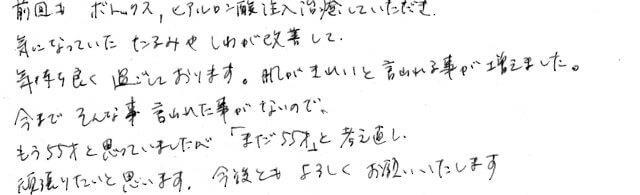 前回も ボトックス,ヒアルロン酸注入治療していただき.
気になっていた たるみや しわが改善して.
気持ち良く 過ごしております。肌がきれいと言われる事が増えました。
今まで そんな事 言われた事がないので、
もう55才と思っていましたが「まだ55才」と 考え直し.
頑張りたいと思います. 今後とも よろしく お願いいたします